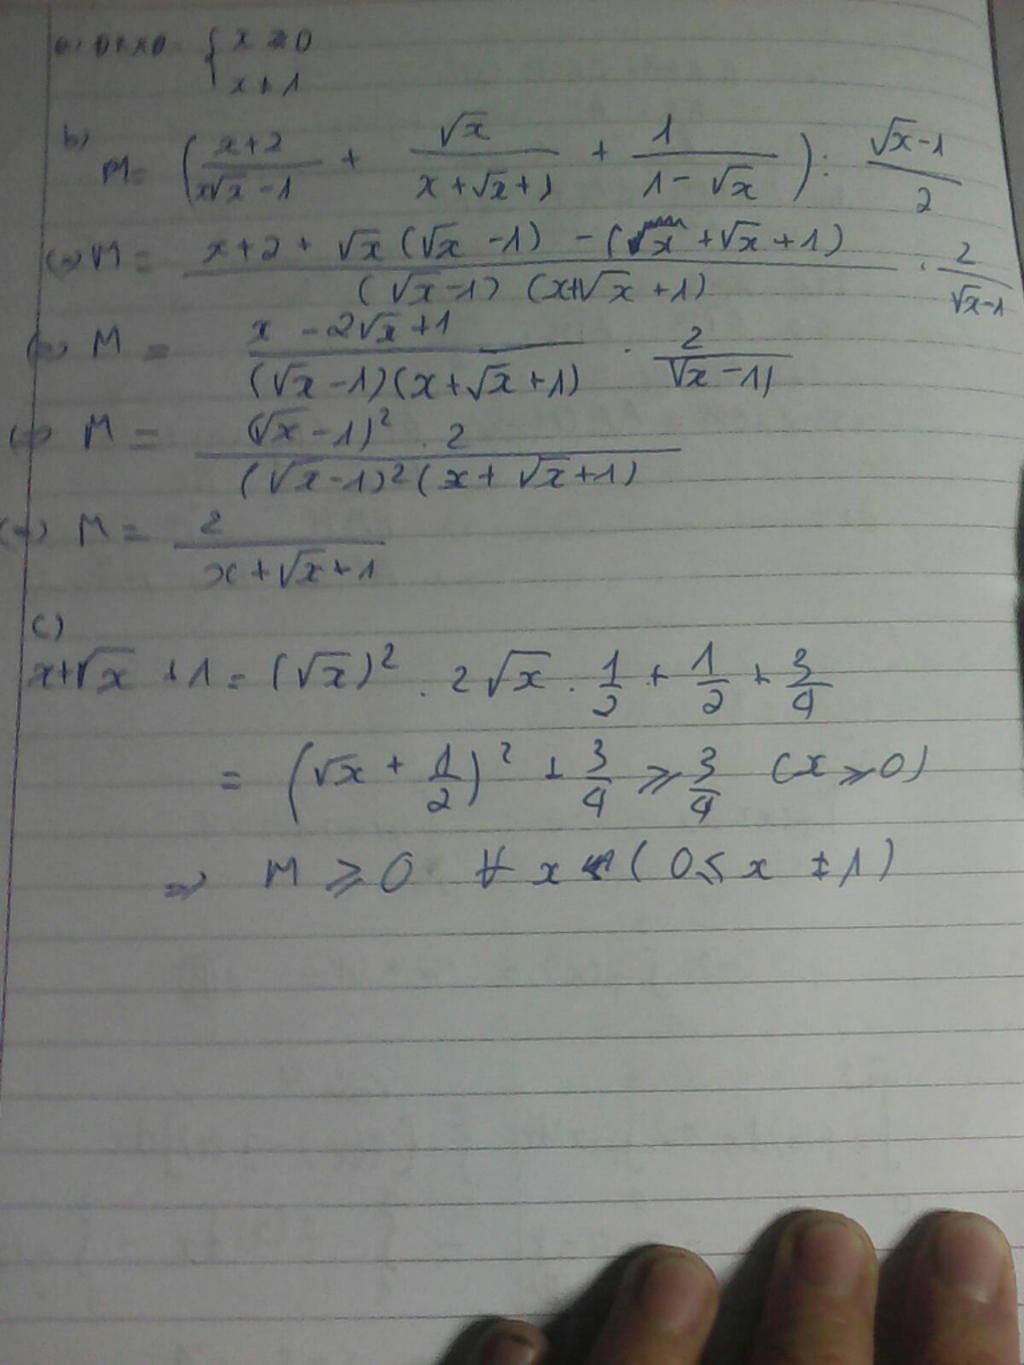 { x ≥ 0
x ≠ 1
b) M = (x+2 / x√x - 1 + √x / x+√x+1 + 1 / 1-√x) : √x-1 / 2
(=) M = x+2 + √x(√x -1) - (x+√x+1) / (√x-1) (x+√x+1) . 2 / √x-1
(=) M = x -2√x+1 / (√x-1)(x+√x+1) . 2 / √x-1
(=) M = (√x-1)² . 2 / (√x-1)²(x+√x+1)
(=) M = 2 / x+√x+1
c)
x+√x+1 = (√x)² . 2√x . 1/2 + 1/2 + 3/4
= (√x + 1/2)² + 3/4 ≥ 3/4 (x ≥ 0)
=> M ≥ 0 ∀ x (0 ≤ x ≠ 1)